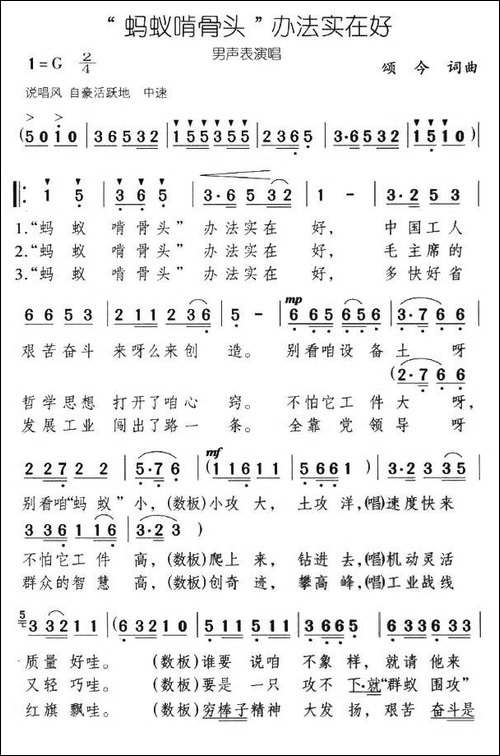 “蚂蚁啃骨头”办法实在好
男声表演唱
1=G 2/4
颂今 词曲
说唱风 自豪活跃地 中速
(5 0 1 0 | 3 6 5 3 2 | 1 5 5 3 5 5 | 5 3 2 1 | 3·6 5 3 2 | 1 5 1 0)
1 5 | 3 6 5 | 3·6 5 3 2 | 1 - | 3·2 5 3
1.“蚂 蚁 啃 骨 头” 办 法 实 在 好， 中 国 工 人
2.“蚂 蚁 啃 骨 头” 办 法 实 在 好， 毛 主 席 的
3.“蚂 蚁 啃 骨 头” 办 法 实 在 好， 多 快 好 省
6 6 5 3 | 2 1 1 2 3 6 | 5 - | mp 6 6 5 6 5 6 | 3·2 7 6 6
艰 苦 奋 斗 来 呀 么 来 创 造。 别 看 咱 设 备 土 呀
(2·7 6 6)
哲 学 思 想 打 开 了 咱 心 窍。 不 怕 它 工 件 大 呀，
发 展 工 业 闯 出 了 路 一 条。 全 靠 党 领 导 呀
2 2 7 2 | 5·7 6 | mf (1 1 6 1 1 | 5 6 6 1) | 3·2 3 3 5
别 看 咱“蚂 蚁” 小，(数板)小 攻 大， 土 攻 洋，(唱)速 度 快 来
3 3 6 1 1 6 | (3·2 3)
不 怕 它 工 件 高，(数板)爬 上 来， 钻 进 去，(唱)机 动 灵 活
群 众 的 智 慧 高，(数板)创 奇 迹， 攀 高 峰，(唱)工 业 战 线
3 3 2 1 1 | (6 3 2 1 0 | 5 1 1 5 1 1 | 5 3 5 1 | 6 3 3 6 3 3
质 量 好 哇。 (数板)谁 要 说 咱 不 象 样， 就 请 他 来
又 轻 巧 哇。 (数板)要 是 一 只 攻 不 下·就“群 蚁 围 攻”
红 旗 飘 哇。 (数板)穷 棒 子 精 神 大 发 扬， 艰 苦 奋 斗 是